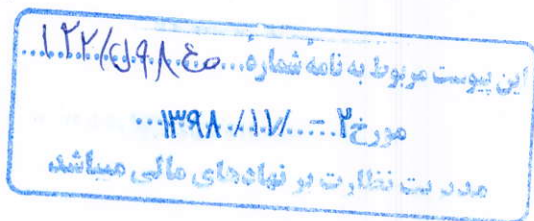 این پیوست مربوط به نامه شماره ۱۲۲/۹۸ل/مع
مورخ ۱۳۹۸/۱۱/۰۲
مدیریت نظارت بر نهادهای مالی میباشد